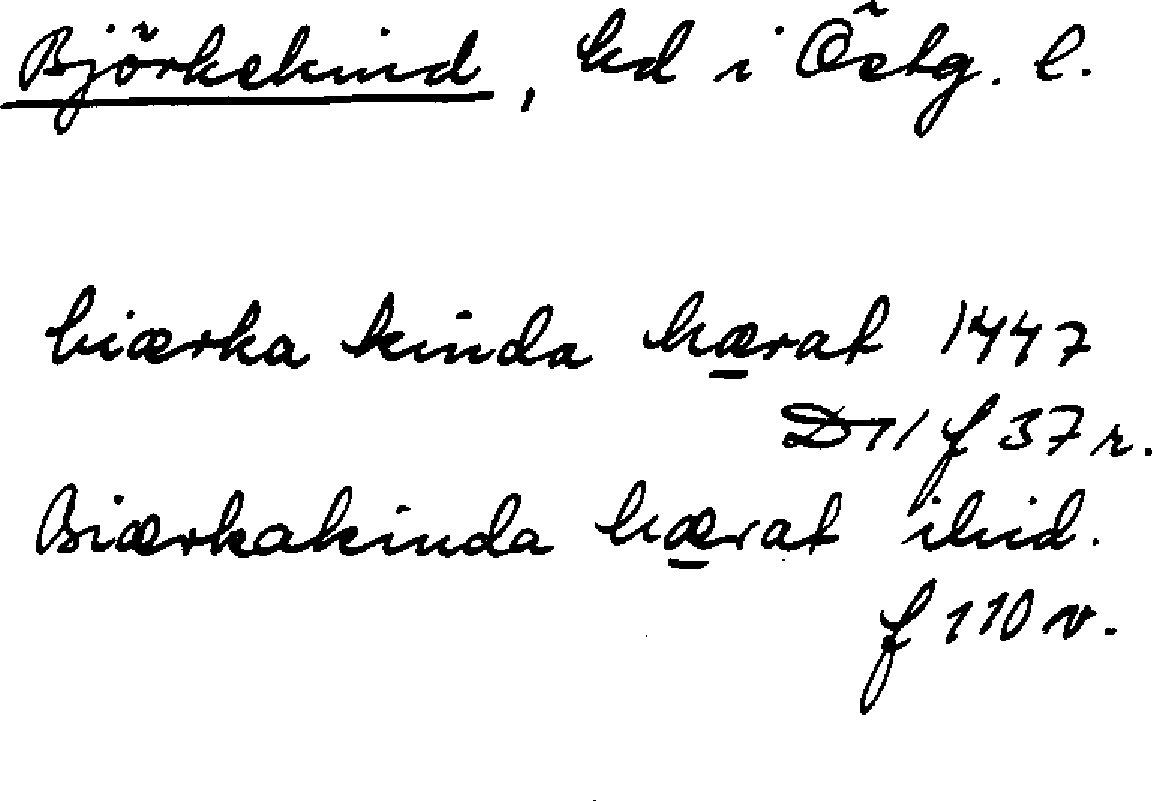 Björkekind, hd i Östg. l.
biærka kinda hærat 1447
D 11 f 37 r.
Biærkakinda hærat ibid.
f 110 v.